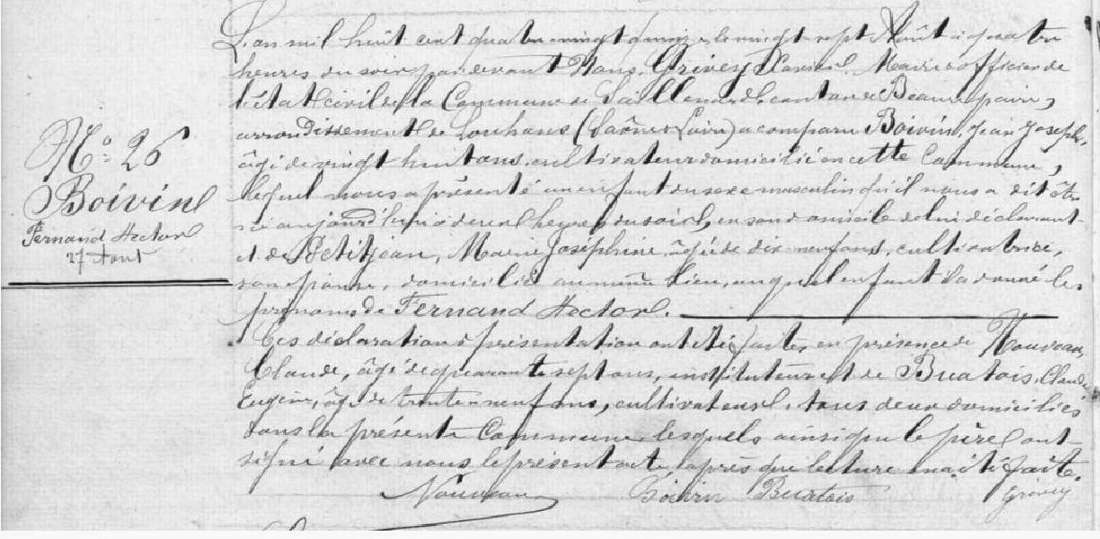 N° 26
Boivin
Fernand Hector
27 Aout
L'an mil huit cent quatre vingt quinze, le vingt sept Août à quatre
heures du soir, par devant Nous, Grivey Xavier, Maire & officier de
l'état civil de la Commune de Saillenard, canton de Beaurepaire,
arrondissement de Louhans (Saône & Loire) a comparu Boivin, Jean Joseph,
âgé de vingt huit ans, cultivateur domicilié en cette Commune,
lequel nous a présenté un enfant du sexe masculin qu'il nous a dit être
né aujourd'hui à deux heures du soir, en son domicile de lui déclarant
et de Petitjean, Marie Joséphine, âgée de dix neuf ans, cultivatrice,
son épouse, domiciliée au même lieu, auquel enfant il a donné les
prénoms de Fernand Hector.
Ces déclaration & présentation ont été faites en présence de Nouveau,
Claude, âgé de quarante sept ans, instituteur et de Buatois, Claude
Eugène, âgé de trente neuf ans, cultivateur, tous deux domiciliés
dans la présente Commune lesquels ainsi que le père ont
signé avec nous le présent acte, après que lecture en a été faite.
Nouveau Boivin Buatois Grivey